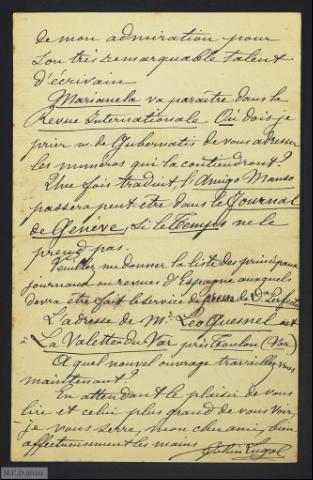 de mon admiration pour
son très remarquable talent
d'écrivain
Marianela va paraître dans la
Revue Internationale Où dois-je
prier M. de Gubernatis de vous adresser
les numéros qui la contiendront?
Une fois traduit, l'Amigo Manso
passera peut être dans le Journal
de Genève, si le Temps ne le
prend pas.
Veuillez me donner la liste des principaux
journaux ou revues d'Espagne auxquels
devra être fait le service de Da Perfecta
L'adresse de Mr Leo Quesnel est
à La Valette du Var près Toulon (Var)
A quel nouvel ouvrage travaillez vous
maintenant?
En attendant le plaisir de vous
lire et celui plus grand de vous voir,
je vous serre, mon cher ami, bien
affectueusement les mains
Julien Lugol
M.C.D.2020